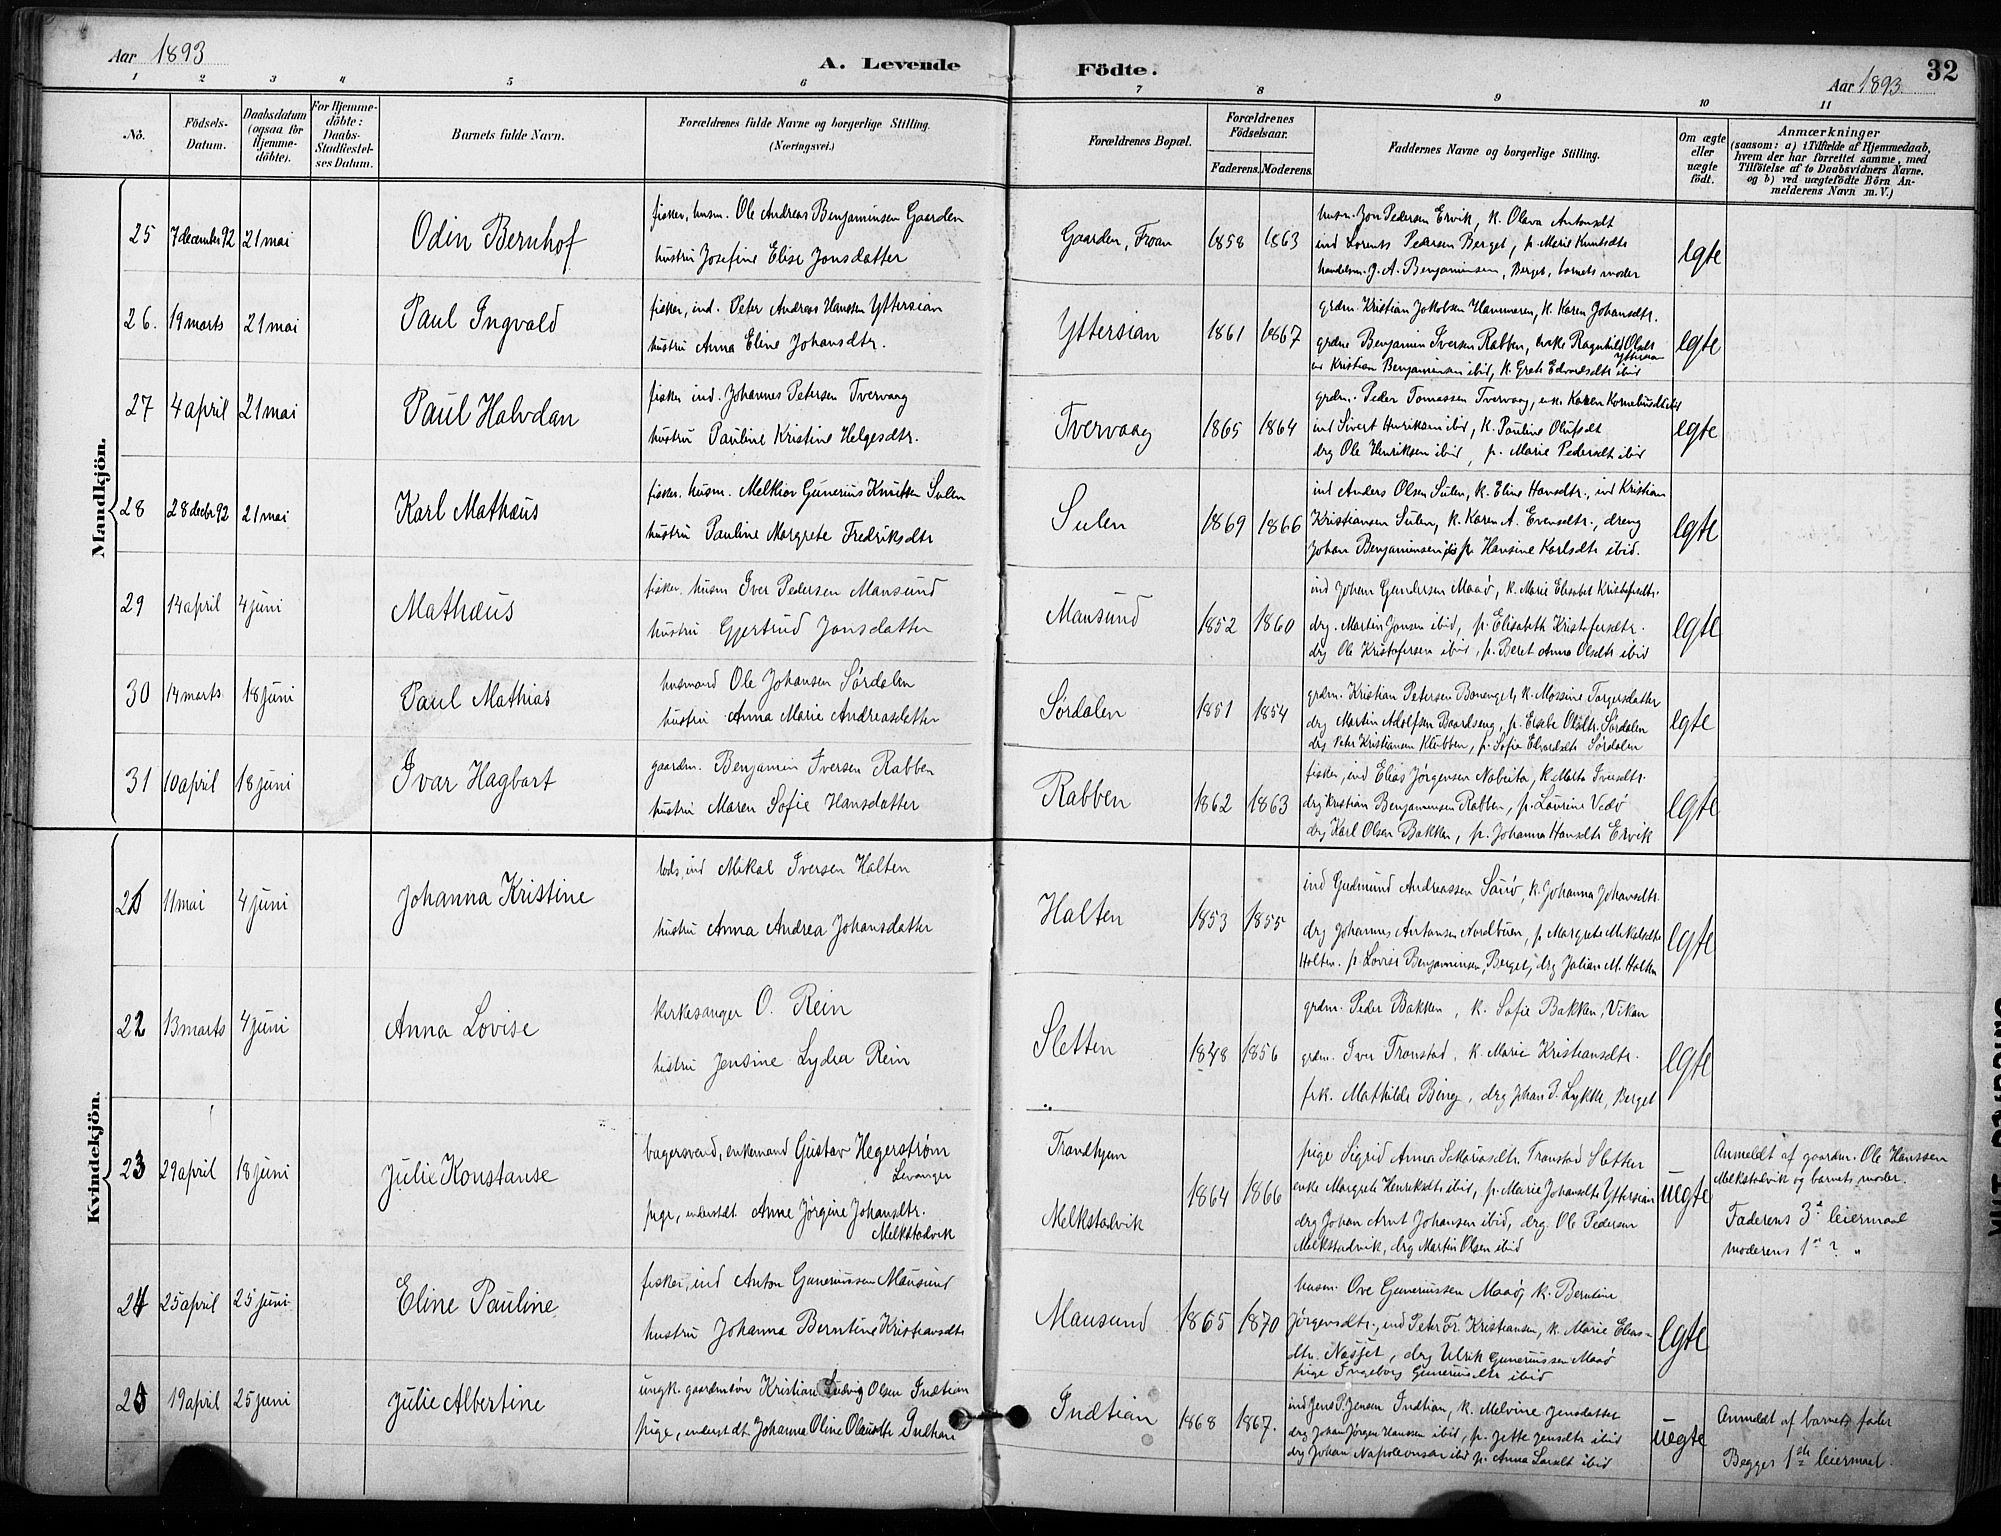 Aar 1893
A. Levende Födte.
Aar 1893
32
1 2 3 4 5 6 7 8 9 10 11
No.
Födsels-Datum.
Daabsdatum (ogsaa for Hjemme-döbte).
For Hjemme-döbte: Daabs-Stadfæstel-ses Datum.
Barnets fulde Navn.
Forældrenes fulde Navne og borgerlige Stilling.
(Næringsvei.)
Forældrenes Bopæl.
Forældrenes Födselsaar.
Faderens. Moderens.
Faddernes Navne og borgerlige Stilling.
Om ægte eller uægte födt.
Anmærkninger
(saasom: a) i Tilfælde af Hjemmedaab,
hvem der har forrettet samme, med
Tilföielse af to Daabsvidners Navne,
og b) ved uægtefödte Börn An-
melderens Navn m. V.)
Mandkjön.
25 7 december 92 21 mai Odin Bernhof
fisker, husm. Ole Andreas Benjaminsen Gaarden
hustru Josefine Elise Jonsdatter
Gaarden, Froan 1858 1863
husm. Jon Pedersen Ervik, k. Olava Antonsdt
ind Lorents Pedersen Berget, p. Marie Knutsdtr
handelsm. J. A. Benjaminsen, Berget, barnets moder
egte
26. 19 marts 21 mai Paul Ingvald
fisker, ind. Peter Andreas Hansen Yttersian
hustru Anna Eline Johansdtr.
Yttersian 1861 1867
grdm. Kristian Jakobsen Hammeren, k. Karen Johansdtr.
grdm Benjamin Iversen Rabben, enke Ragnhild Olsdt
Yttersian
Kristian Benjaminsen ibid, k. Grete Edvardsdtr ibid
egte
27 4 april 21 mai Paul Halvdan
fisker ind. Johannes Petersen Tvervaag
hustru Pauline Kristine Helgesdtr.
Tvervaag 1865 1864
grdm. Peder Tomassen Tvervaag, enke Karen Korneliusdt ibid
ind Sivert Henriksen ibid, k. Pauline Olufsdt
drg Ole Henriksen ibid, p. Marie Pedersdt ibid
egte
28 28 decbr 92 21 mai Karl Mathæus
fisker, husm. Melkior Gunerius Knutsen Sulen
hustru Pauline Margrete Fredriksdtr
Sulen 1869 1866
ind Anders Olsen Sulen, k. Eline Hansdtr., ind Kristian
Kristiansen Sulen, k. Karen A. Evensdtr., dreng
Johan Benjaminsen p. Hansine Karlsdtr ibid.
egte
29 14 april 4 juni Mathæus
fisker, husm Iver Pedersen Mausund
hustru Gjertrud Jonsdatter
Mausund 1852 1860
ind Johan Gundersen Maaø, k. Marie Elisabet Kristofersdtr.
drg. Martin Jonsen ibid, p. Elisabeth Kristofersdtr.
drg Ole Kristofersen ibid, p. Beret Anna Olsdtr ibid
egte
30 14 marts 18 juni Paul Mathias
husmand Ole Johansen Sørdalen
hustru Anna Marie Andreasdatter
Sørdalen 1851 1854
grdm. Kristian Petersen Bonenget, k. Massine Torgersdatter
drg Martin Adolfsen Baardseng, p. Elsebe Olsdtr. Sørdalen
drg Peter Kristiansen Klubben, p. Sofie Edvardsdtr Sørdalen
egte
31 10 april 18 juni Ivar Hagbart
gaardm. Benjamin Iversen Rabben
hustru Maren Sofie Hansdatter
Rabben 1862 1863
fisker, ind Elias Jørgensen Nabeita, k. Marta Iversdtr.
drg Kristian Benjaminsen Rabben, p. Laurine Vedø
drg Karl Olsen Bakken, p. Johanna Hansdtr Ervik
egte
Kvindekjön.
21 11 mai 4 juni Johanna Kristine
lods, ind Mikal Iversen Halten
hustru Anna Andrea Johansdatter
Halten 1853 1855
ind Gudmund Andreassen Saurø, k. Johanna Johansdtr.
drg Johannes Antonsen Nordbuen, p Margrete Mikalsdtr
Halten. p. Lovise Benjaminsen, Berget, drg Julian M. Halten
egte
22 13 marts 4 juni Anna Lovise
kirkesanger O. Rein
hustru Jensine Lydia Rein
Sletten 1848 1856
grdm. Peder Bakken, k. Sofie Bakken, Vikan
grdm. Iver Transtad, k. Marie Kristiansdtr.
frk. Mathilde Bing, drg Johan P. Lykke, Berget
egte
23 29 april 18 juni Julie Konstanse
bagersvend, enkemand Gustav Hegerstrøm
Levanger
pige, inderst dt Anne Jørgine Johansdtr.
Melkstadvik
Trondhjem
Melkstadvik
1864 1866
pige Sigrid Anna Sakariasdtr. Transtad Sletten
enke Margrete Henriksdtr ibid, p. Marie Johansdtr Yttersian
drg Johan Arnt Johansen ibid, drg. Ole Pedersen
Melkstadvik, drg Martin Olsen ibid
uegte
Anmeldt af gaardm. Ole Hanssen
Melkstadvik og barnets moder.
Faderens 3d leiermaal
moderens 1st ? "
24 25 april 25 juni Eline Pauline
fisker, ind Anton Guneriussen Mausund
hustru Johanna Berntine Kristiansdtr
Mausund 1865 1870
husm. Ove Guneriussen Maaø, k. Berntine
Jørgensdtr., ind Peter Fr. Kristiansen, k. Marie Elias-
dtr. Næsset, drg Ulrik Guneriussen Maaø
pige Ingeborg Guneriusdtr ibid
egte
25 19 april 25 juni Julie Albertine
ungk. gaardmsøn Kristian Ludvig Olsen Indtian
pige, inderst dt. Johanna Oline Olausdtr Indtian
Indtian 1868 1867.
ind Jens P. Jensen Indtian, k. Melvine Jensdatter
drg Johan Jørgen Hanssen ibid, p. Jette Jensdtr ibid
drg Johan Napoleonsen ibid p. Anna Larsdt ibid
uegte
Anmeldt af barnets fader
Begges 1ste leiermaal.